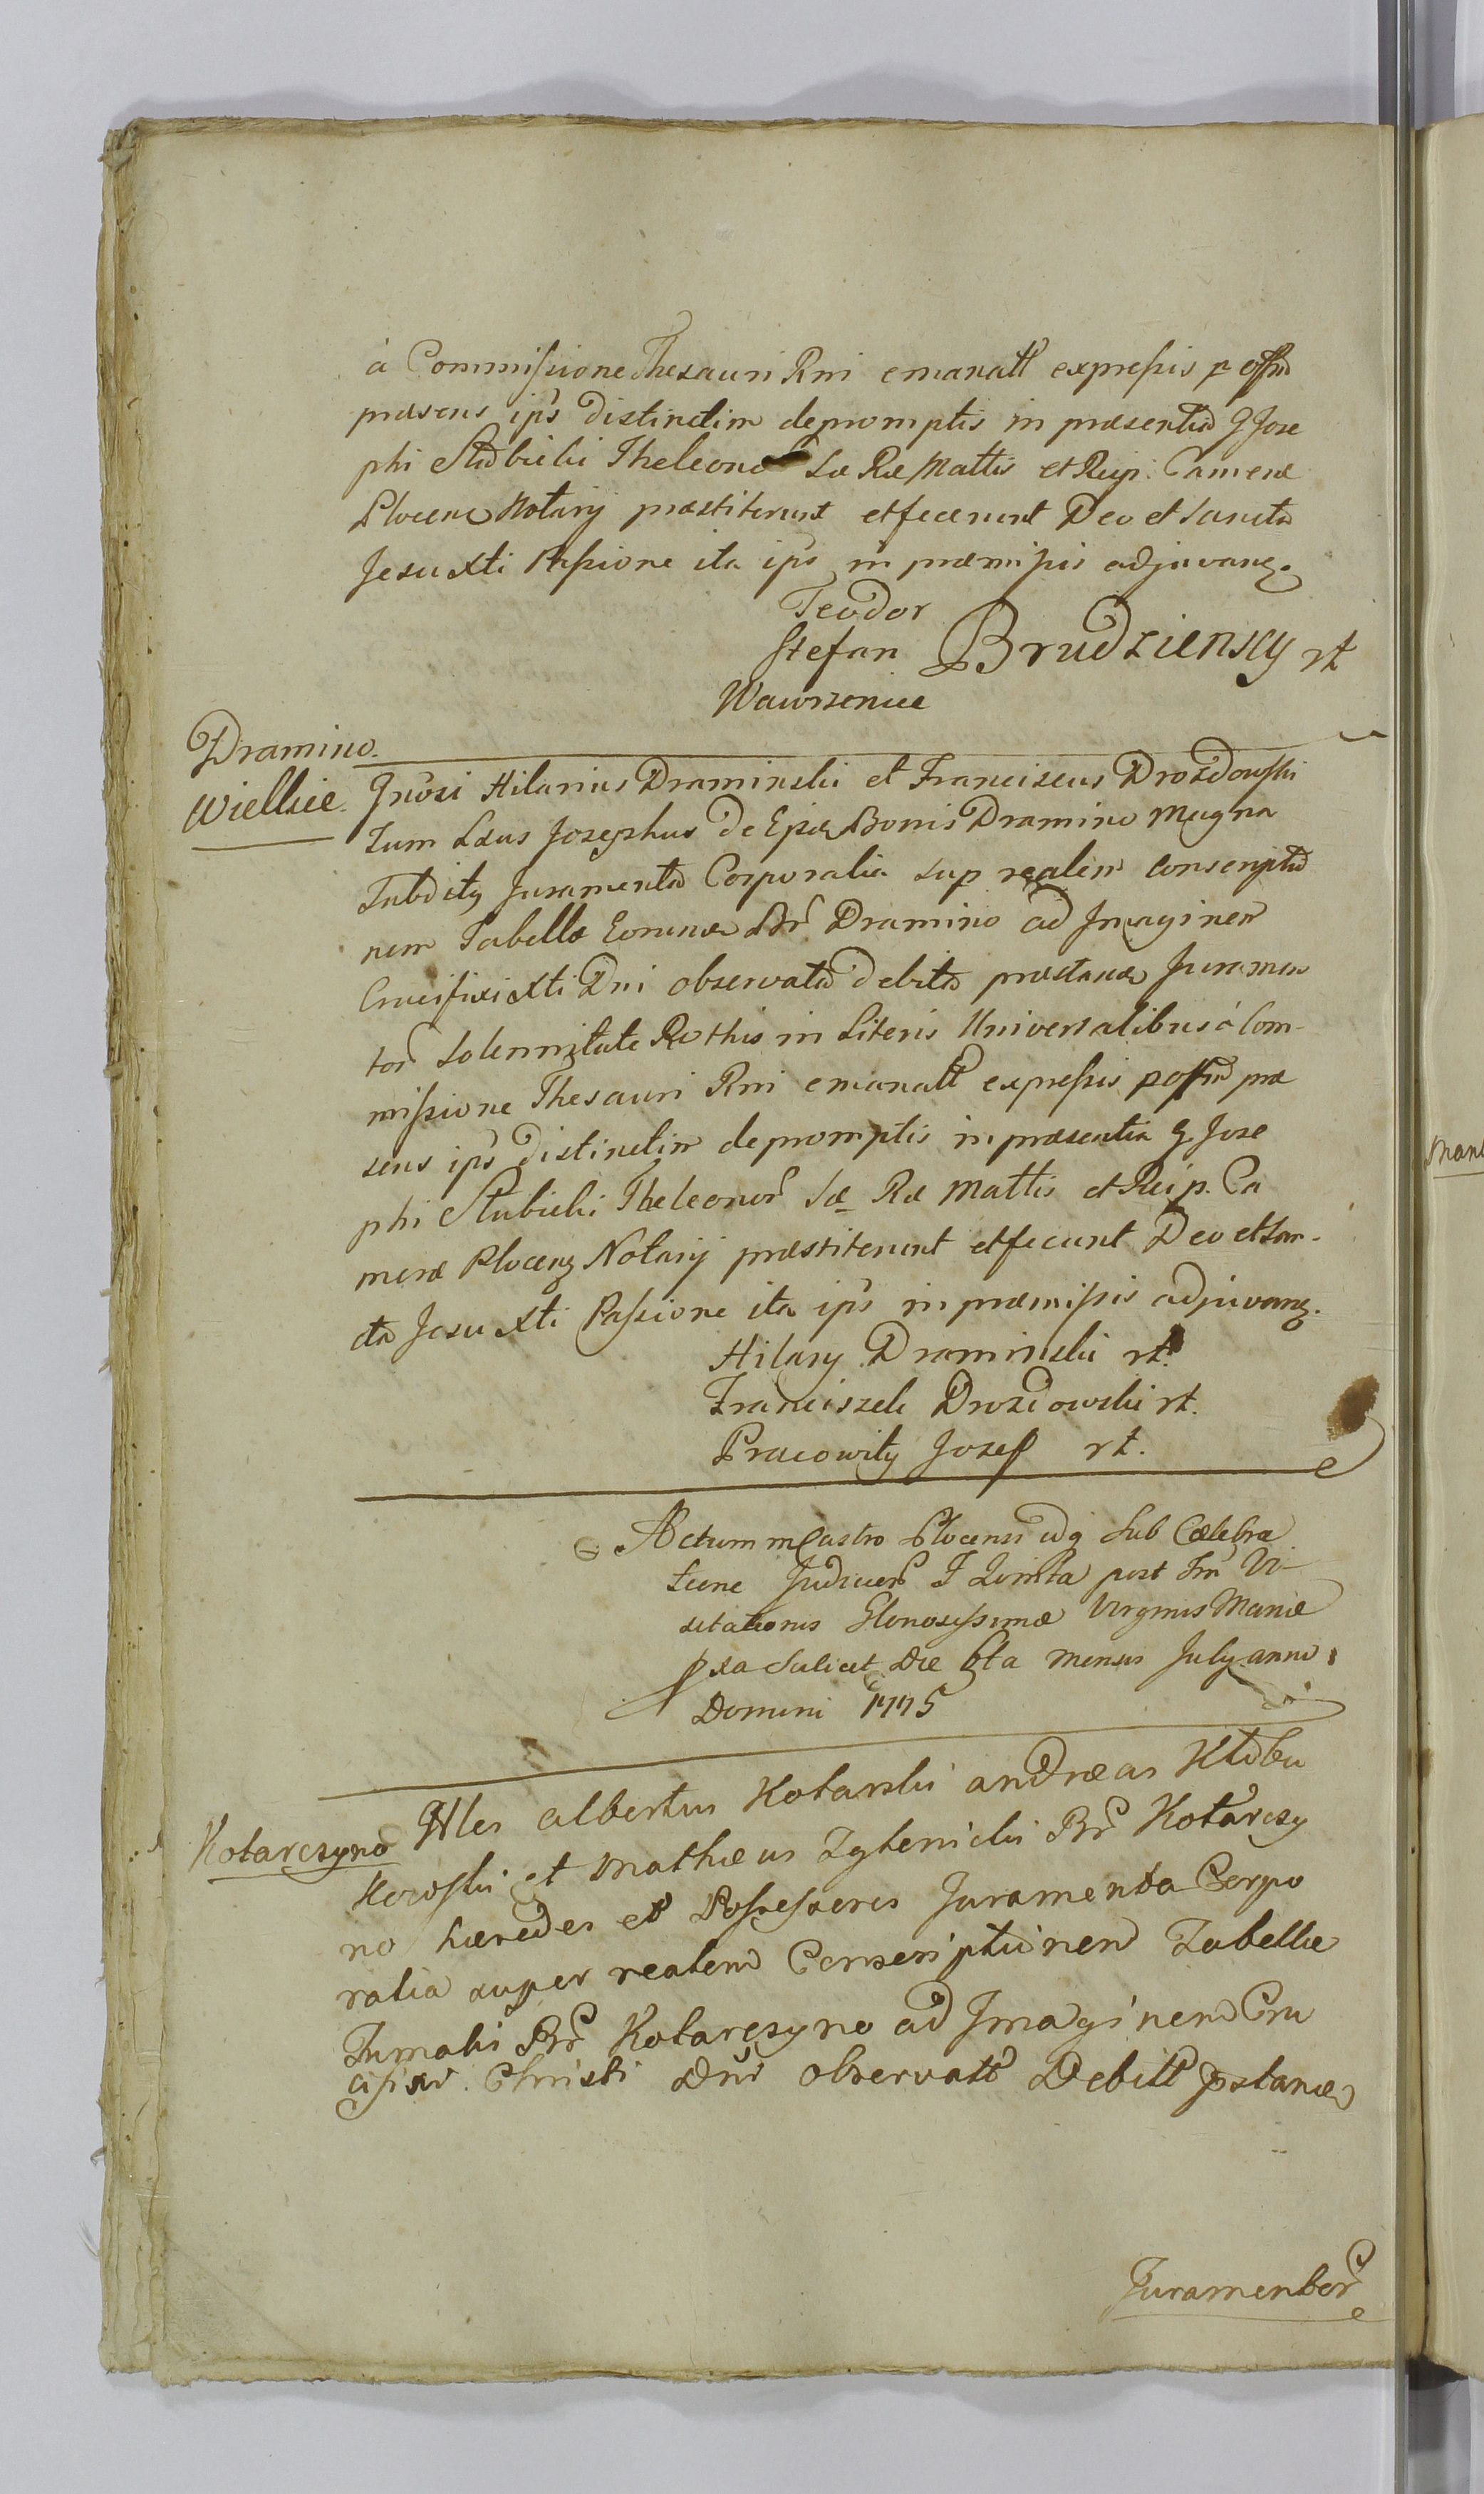 à Commissione Thesauri Rni emanatt expressis p offm
præsens ips distinctim depromptis in præsentia G Jose
phi Stubicki Theleone Sæ Ræ Mattis et Reip. Cameræ
Plocens Notarij præstiterunt et fecerunt Deo et Sancta
Jesu Xti Passione ita ips in præmissis adjuvang.
Teodor
Stefan Brudzienscy rt
Wawrzeniec
Dramino
Wielkie
Gnosi Hilarius Draminski et Franciscus Drozdowski
Tum Lbus Josephus de Epis Bonis Dramino Magna
Subditg Juramenta Corporalia sup realem conscriptio
nem Tabellæ Eorund Br Dramino ad Imaginem
Crucifixi Xti Dni observata debita præstand Juramen
tor Solennitate Rothis in Literis Universalibus à Com-
missione Thesauri Rni emanatt expressis p offm præ
sens ips distinctim depromptis in præsentia G Jose
phi Stubicki Theleoner Sæ Ræ Mattis et Reip. Ca
meræ Plocens Notarij præstiterunt et fecunt Deo et San-
cta Jesu Xti Passione ita ips in præmissis adjuvang.
Hilary Draminski rt.
Franciszek Drozdowski rt.
Pracowity Jozef rt.
Actum in Castro Plocensi idq Sub Cælebra
tione Judicior F Quinta post Fm Vi-
sitationis Gloriosissimæ Virginis Mariæ
pxa Scilicet Die 6ta Mensis July anno
Domini 1775
Kotarczyno
GNles Albertus Kotarski andræas Klobu
kowski et Mathæus Zglenicki Br Kotarczy
no hæredes et Possessores Juramenta Corpo
ralia super realem Conscriptionem Tabellæ
Fumalis Br Kotarczyno ad Imaginem Cru
cifixi Christi Dni Observatt Debitt pstand
Juramentor